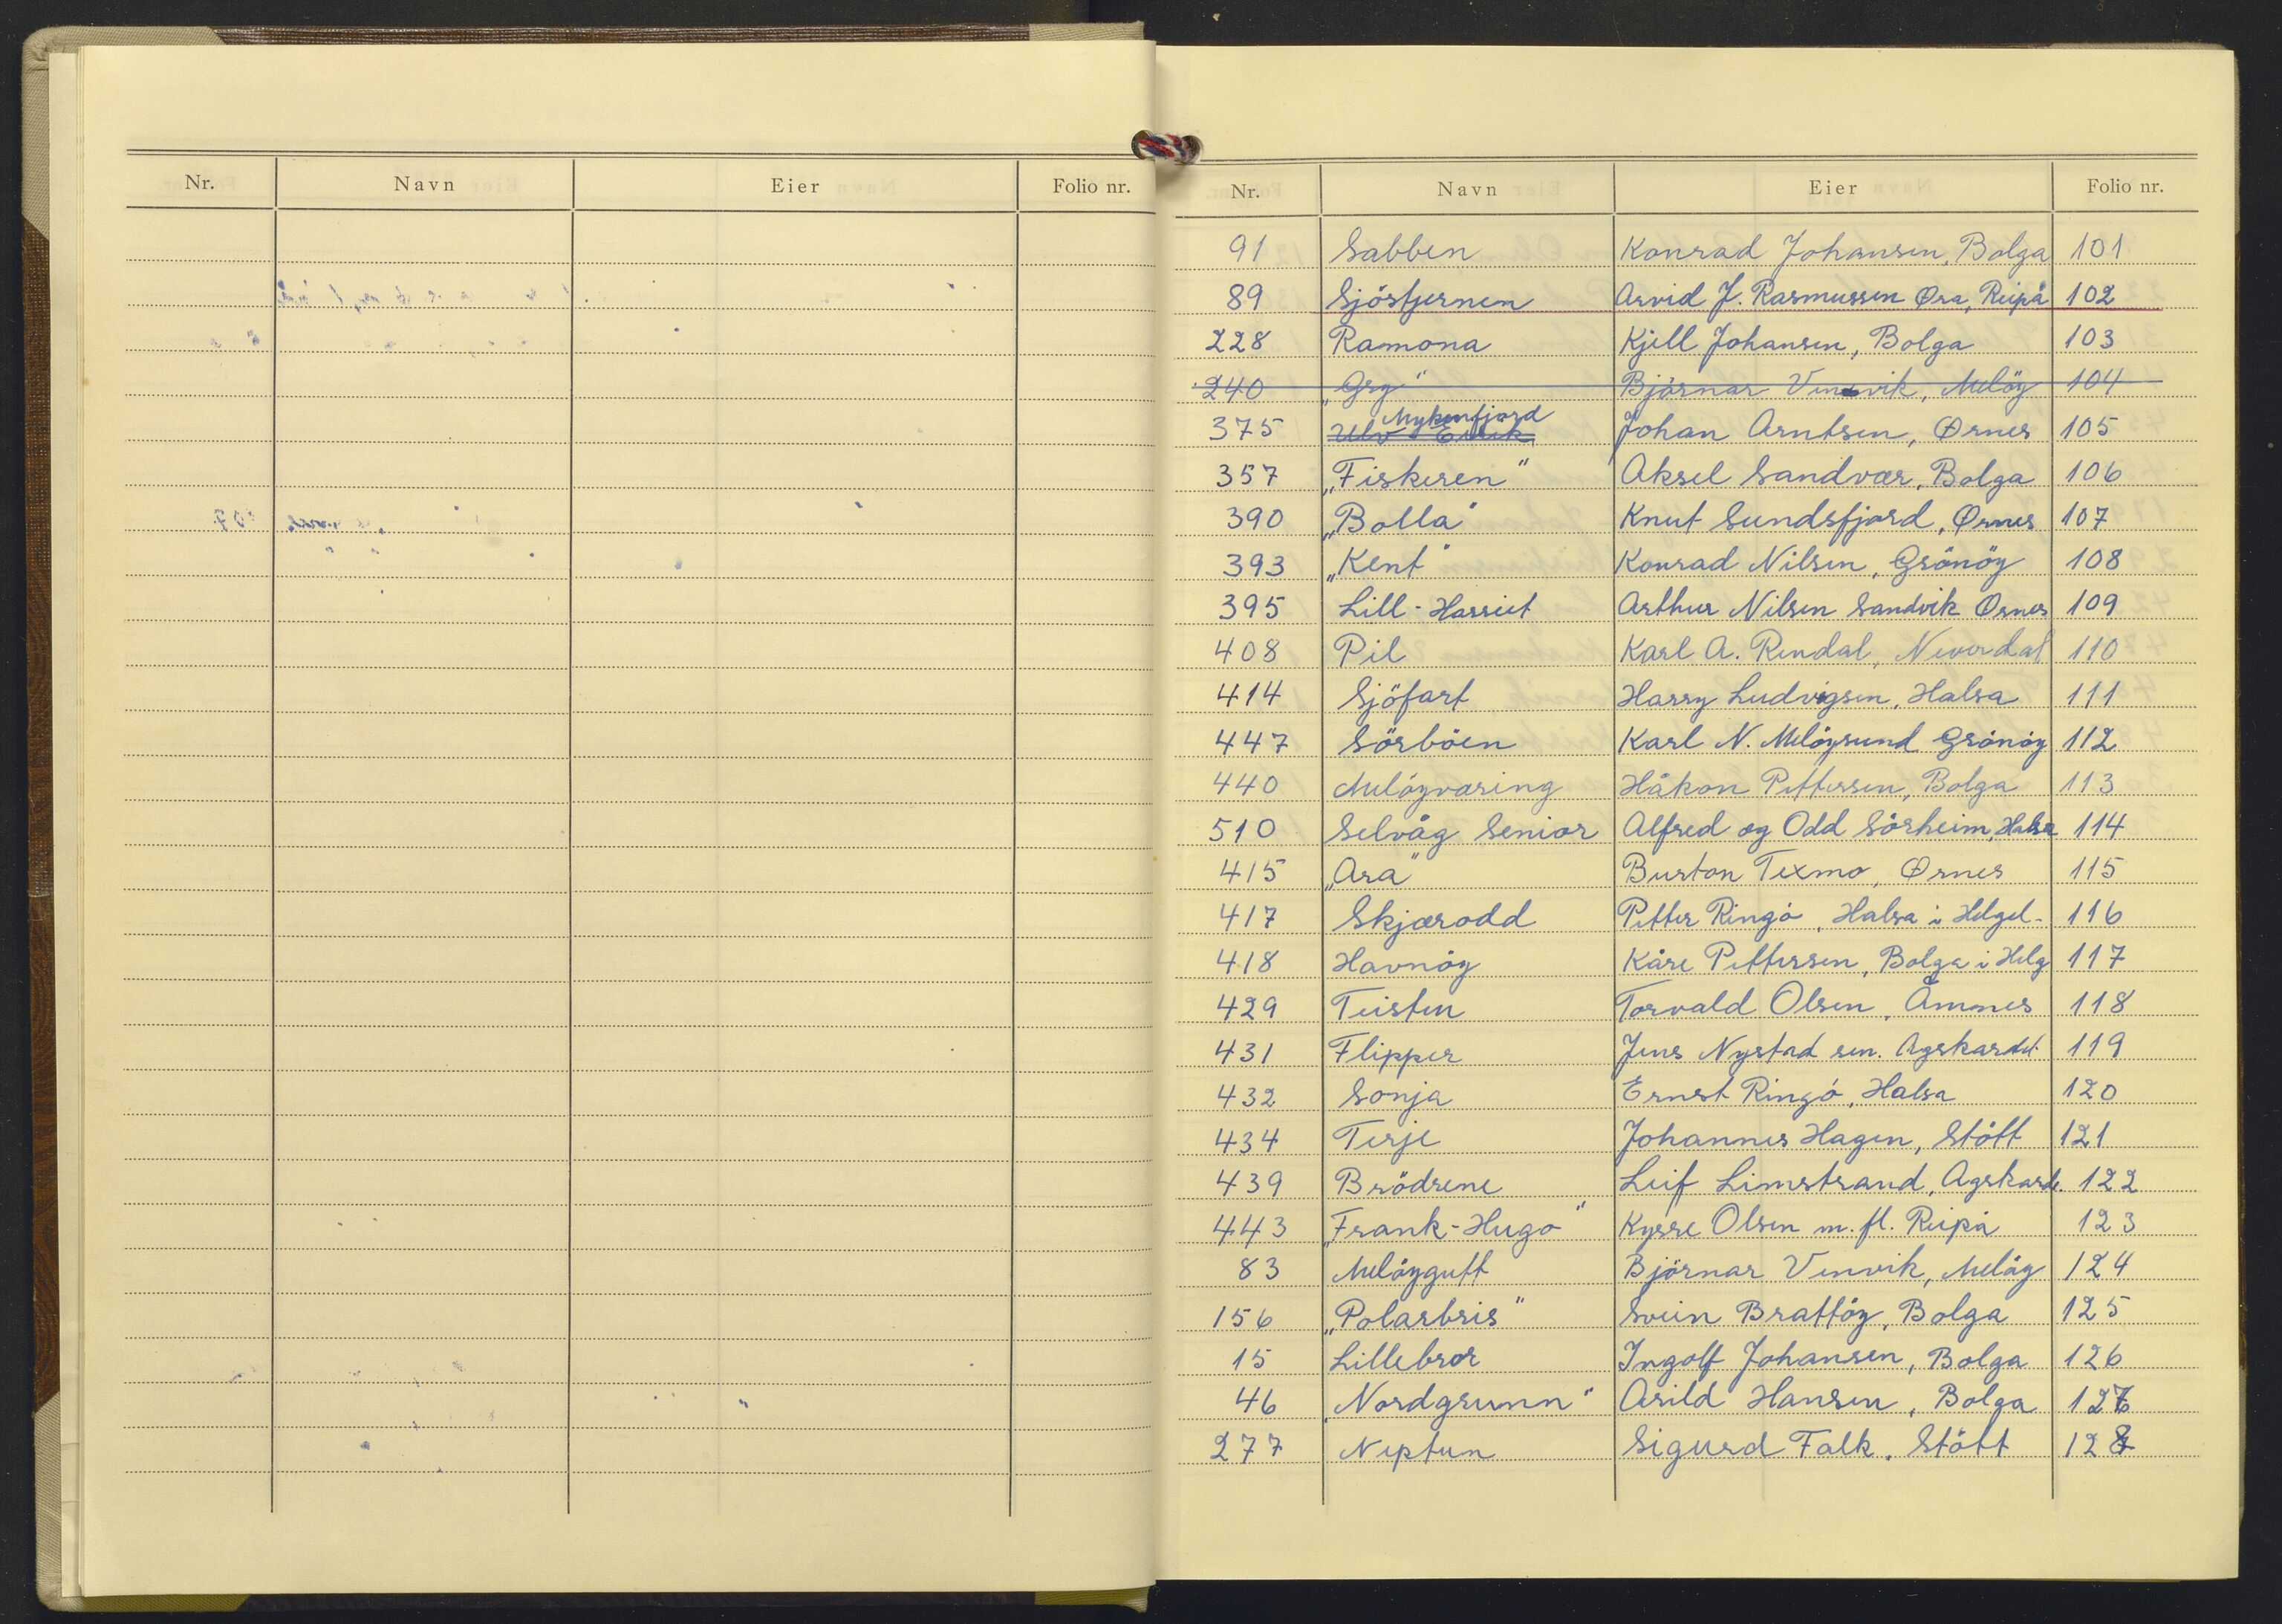 Nr. Navn Eier Folio nr.
Nr. Navn Eier Folio nr.
91 Sabben Konrad Johansen, Bolga 101
89 Sjöstjernen Arvid J. Rasmussen Øra, Reipå 102
228 Ramona Kjell Johansen, Bolga 103
240 „Gry" Björnar Venvik, Melöy 104
Mykenfjord
375 Ulv Eirik Johan Arntsen, Ørnes 105
357 „Fiskeren" Aksel Sandvær, Bolga 106
390 „Bolla" Knut Sundsfjord, Ørnes 107
393 „Kent" Konrad Nilsen, Grönöy 108
395 Lill-Harriet Arthur Nilsen Sandvik Ørnes 109
408 Pil Karl A. Rendal, Neverdal 110
414 Sjöfart Harry Ludvigsen, Halsa 111
447 Sörböen Karl N. Melöysund Grönöy 112
440 Melöyværing Håkon Pettersen, Bolga 113
510 Selvåg Senior Alfred og Odd Sörheim, Halsa 114
415 „Ara" Burton Texmo, Ørnes 115
417 Skjærodd Petter Ringö, Halsa i Helgel. 116
418 Havnöy Kåre Pettersen, Bolga i Helg 117
429 Teisten Torvald Olsen, Åmnes 118
431 Flipper Jens Nystad sen. Agskardet 119
432 Sonja Ernst Ringö, Halsa 120
434 Terje Johannes Hagen, Stött 121
439 Brödrene Leif Limstrand, Agskard. 122
443 „Frank-Hugo" Kyrre Olsen m. fl. Reipå 123
83 Melöygutt Björnar Venvik, Melöy 124
156 „Polarbris" Svein Brattöy, Bolga 125
15 Lillebror Ingolf Johansen, Bolga 126
46 „Nordgrunn" Arild Hansen, Bolga 127
277 Neptun Sigurd Falk, Stött 128